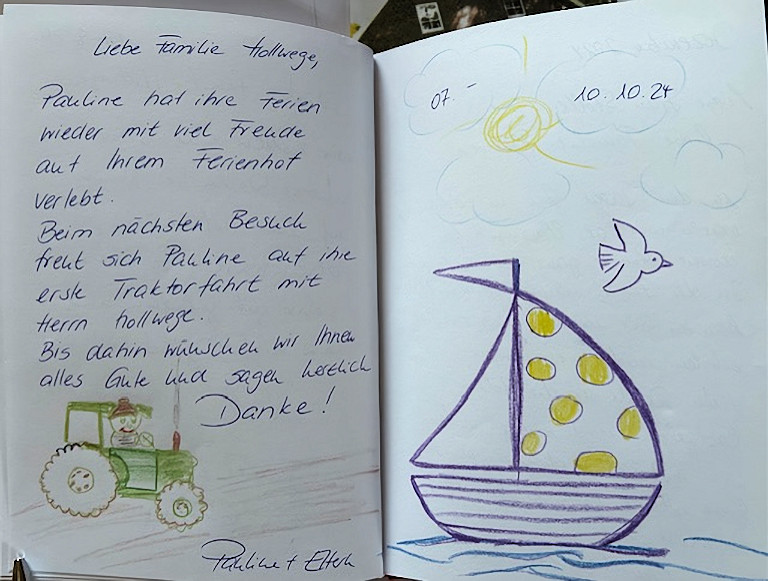 Liebe Familie Hollwege,
Pauline hat ihre Ferien
wieder mit viel Freude
auf Ihrem Ferienhof
verlebt.
Beim nächsten Besuch
freut sich Pauline auf ihre
erste Traktorfahrt mit
Herrn Hollwege.
Bis dahin wünschen wir Ihnen
alles Gute und sagen herzlich
Danke!
Pauline + Eltern
07. - 10.10.24